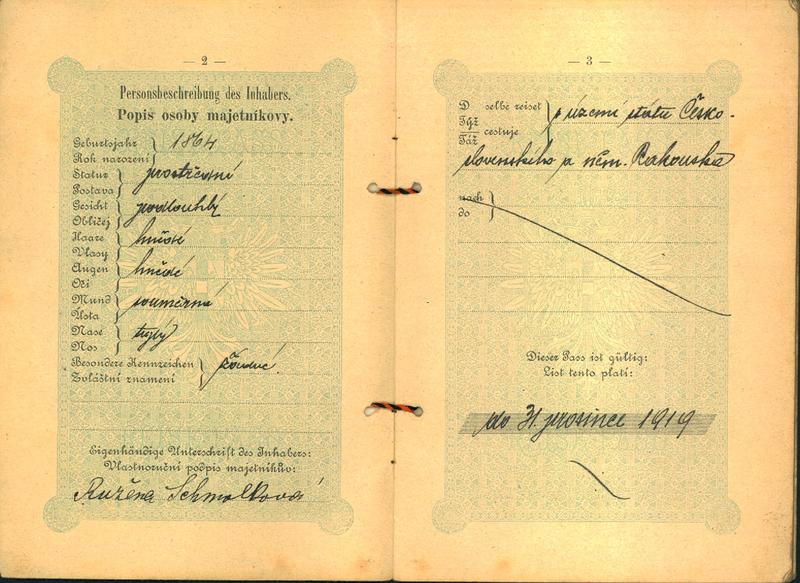 — 2 —
Personsbeschreibung des Inhabers.
Popis osoby majetníkovy.
Geburtsjahr
Rok narození
1864
Statur
Postava
prostřední
Gesicht
Obličej
podlouhlý
Haare
Vlasy
hnědé
Augen
Oči
hnědé
Mund
Ústa
souměrná
Nase
Nos
Besondere Kennzeichen
Zvláštní znamení
žádné
Eigenhändige Unterschrift des Inhabers:
Vlastnoruční podpis majetníkův:
Růžena Schmolková
— 3 —
D selbe reiset
Týž
Táž cestuje
území státu Česko-
slovenského a něm. Rakouska
nach
do
Dieser Pass ist gültig:
List tento platí:
do 31. prosince 1919